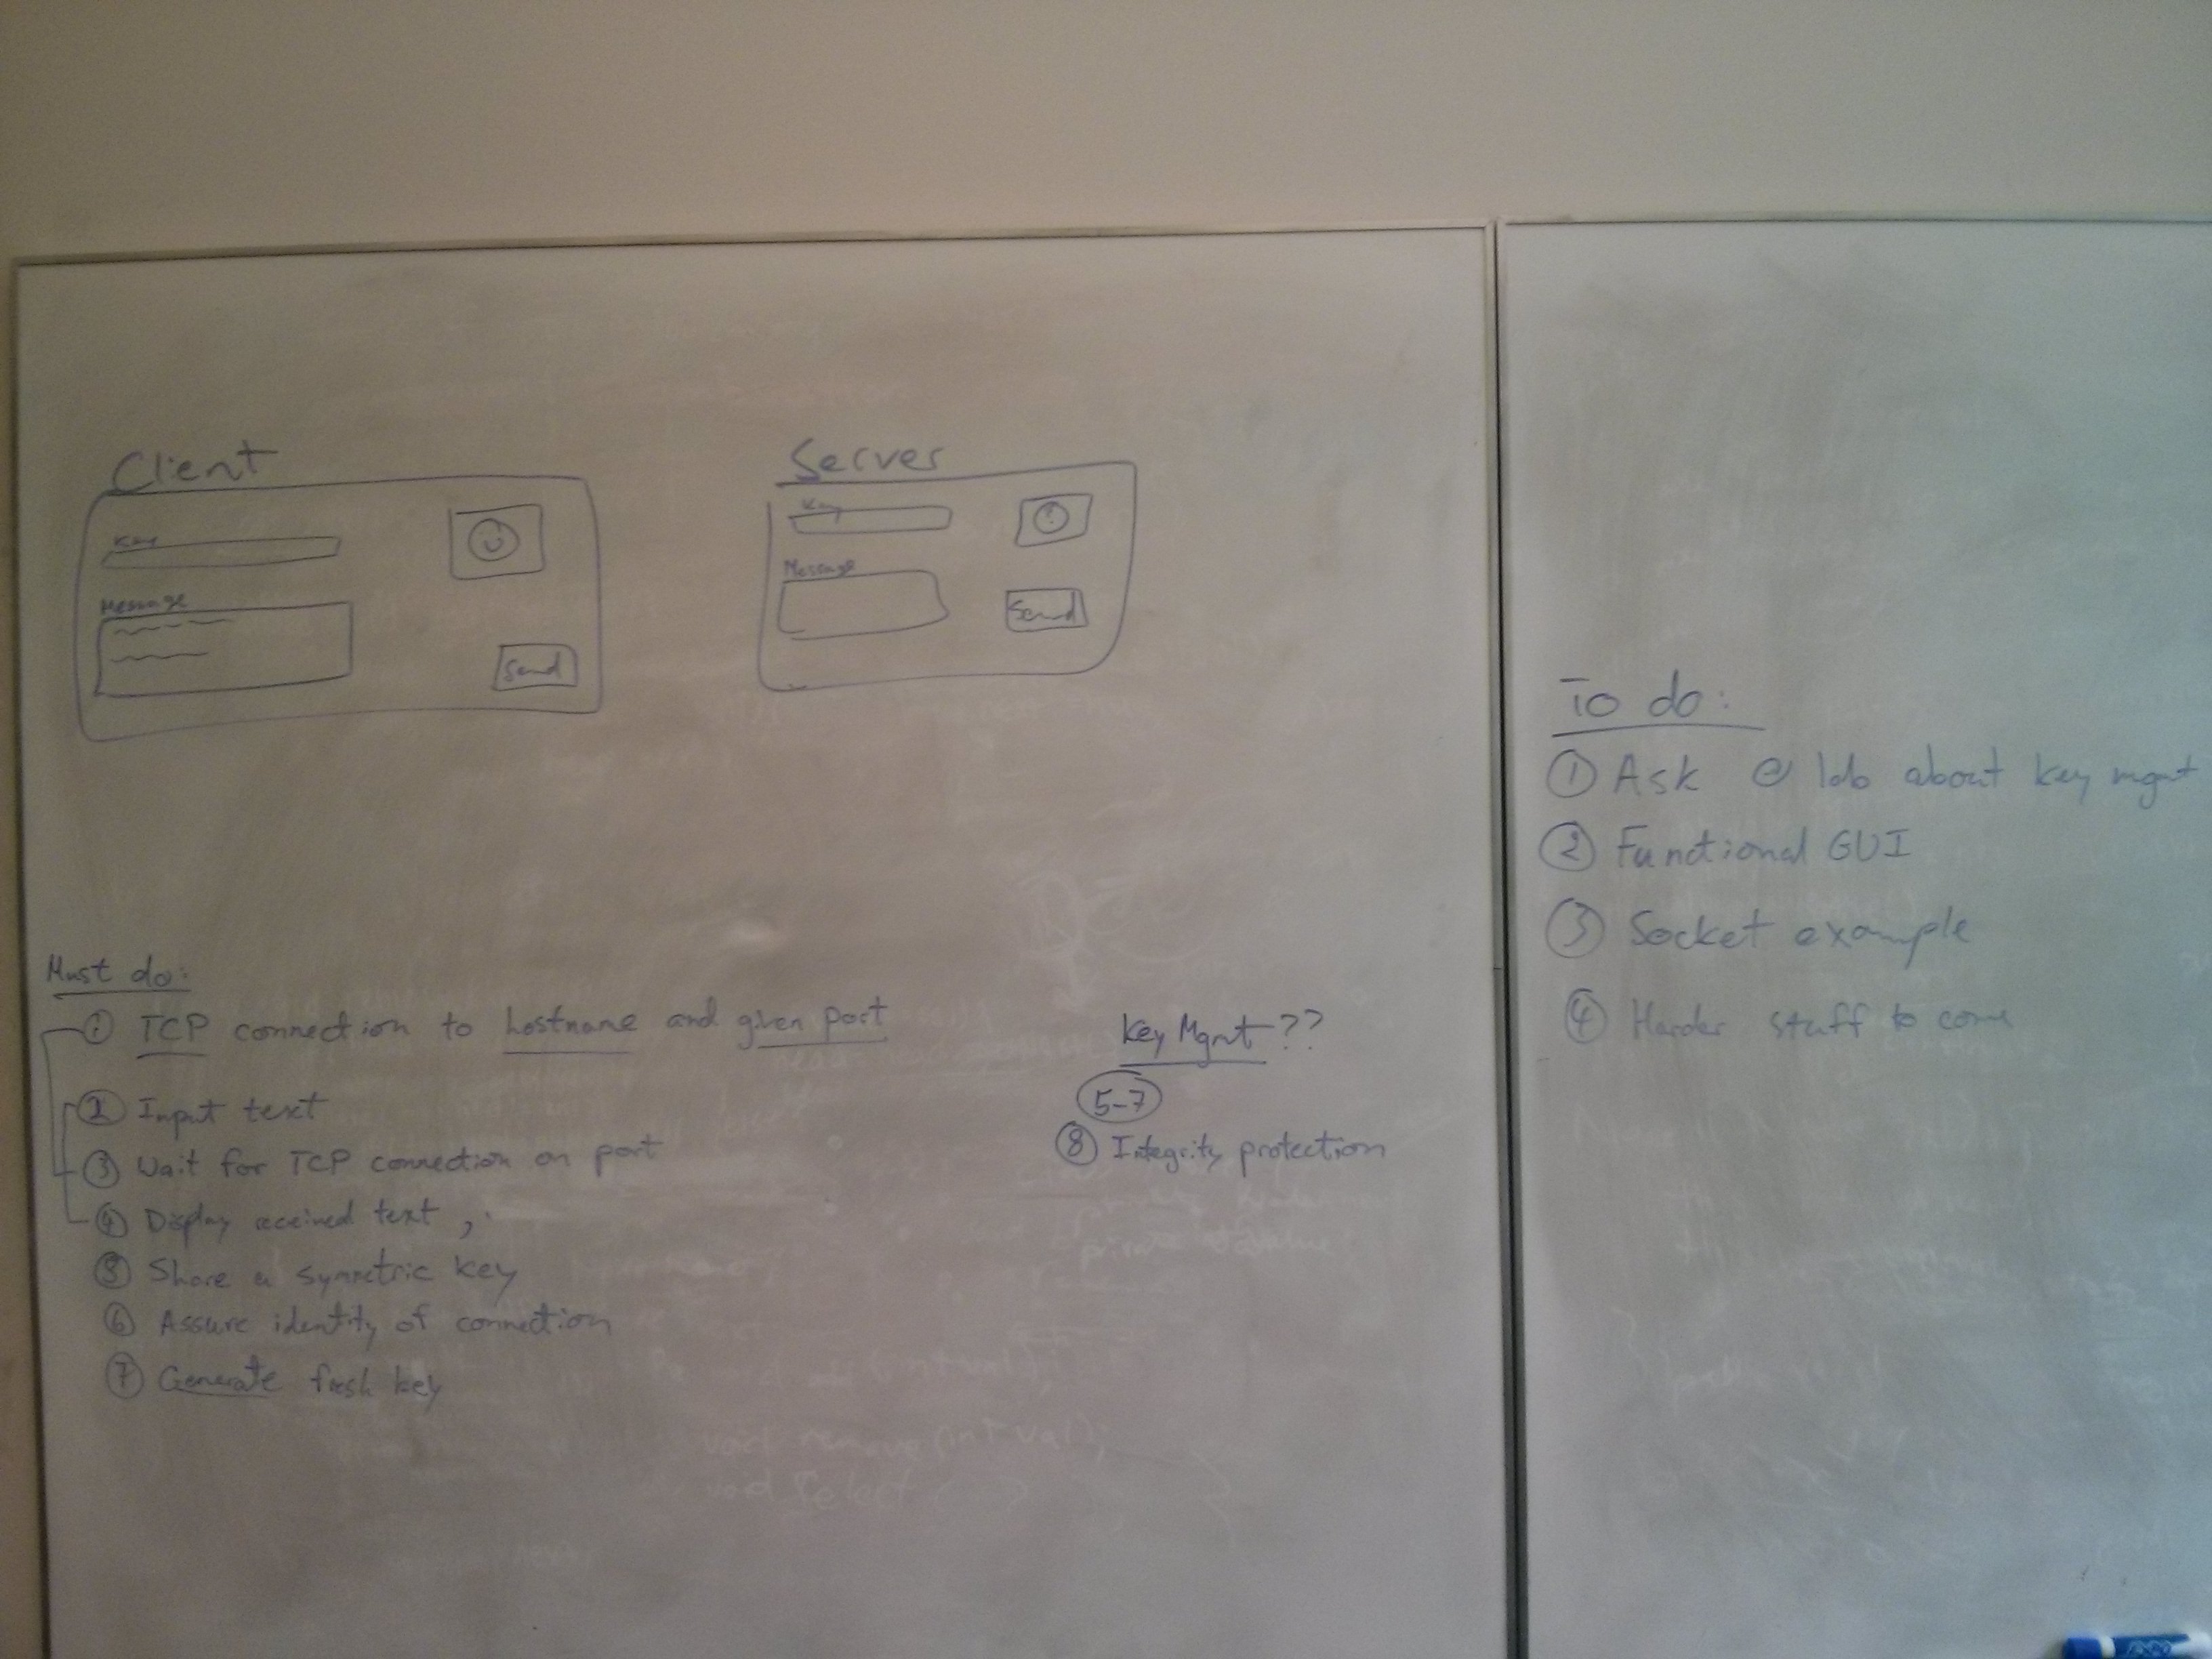 Client
Key
Message
Send
Server
Key
Message
Send
Must do:
① TCP connection to hostname and given port
② Input text
③ Wait for TCP connection on port
④ Display received text,
⑤ Share a symmetric key
⑥ Assure identity of connection
⑦ Generate fresh key
Key Mgmt??
5-7
⑧ Integrity protection
void remove(int val);
void Select(
To do:
① Ask @ lab about key mgmt
② Functional GUI
③ Socket example
④ Harder stuff to come